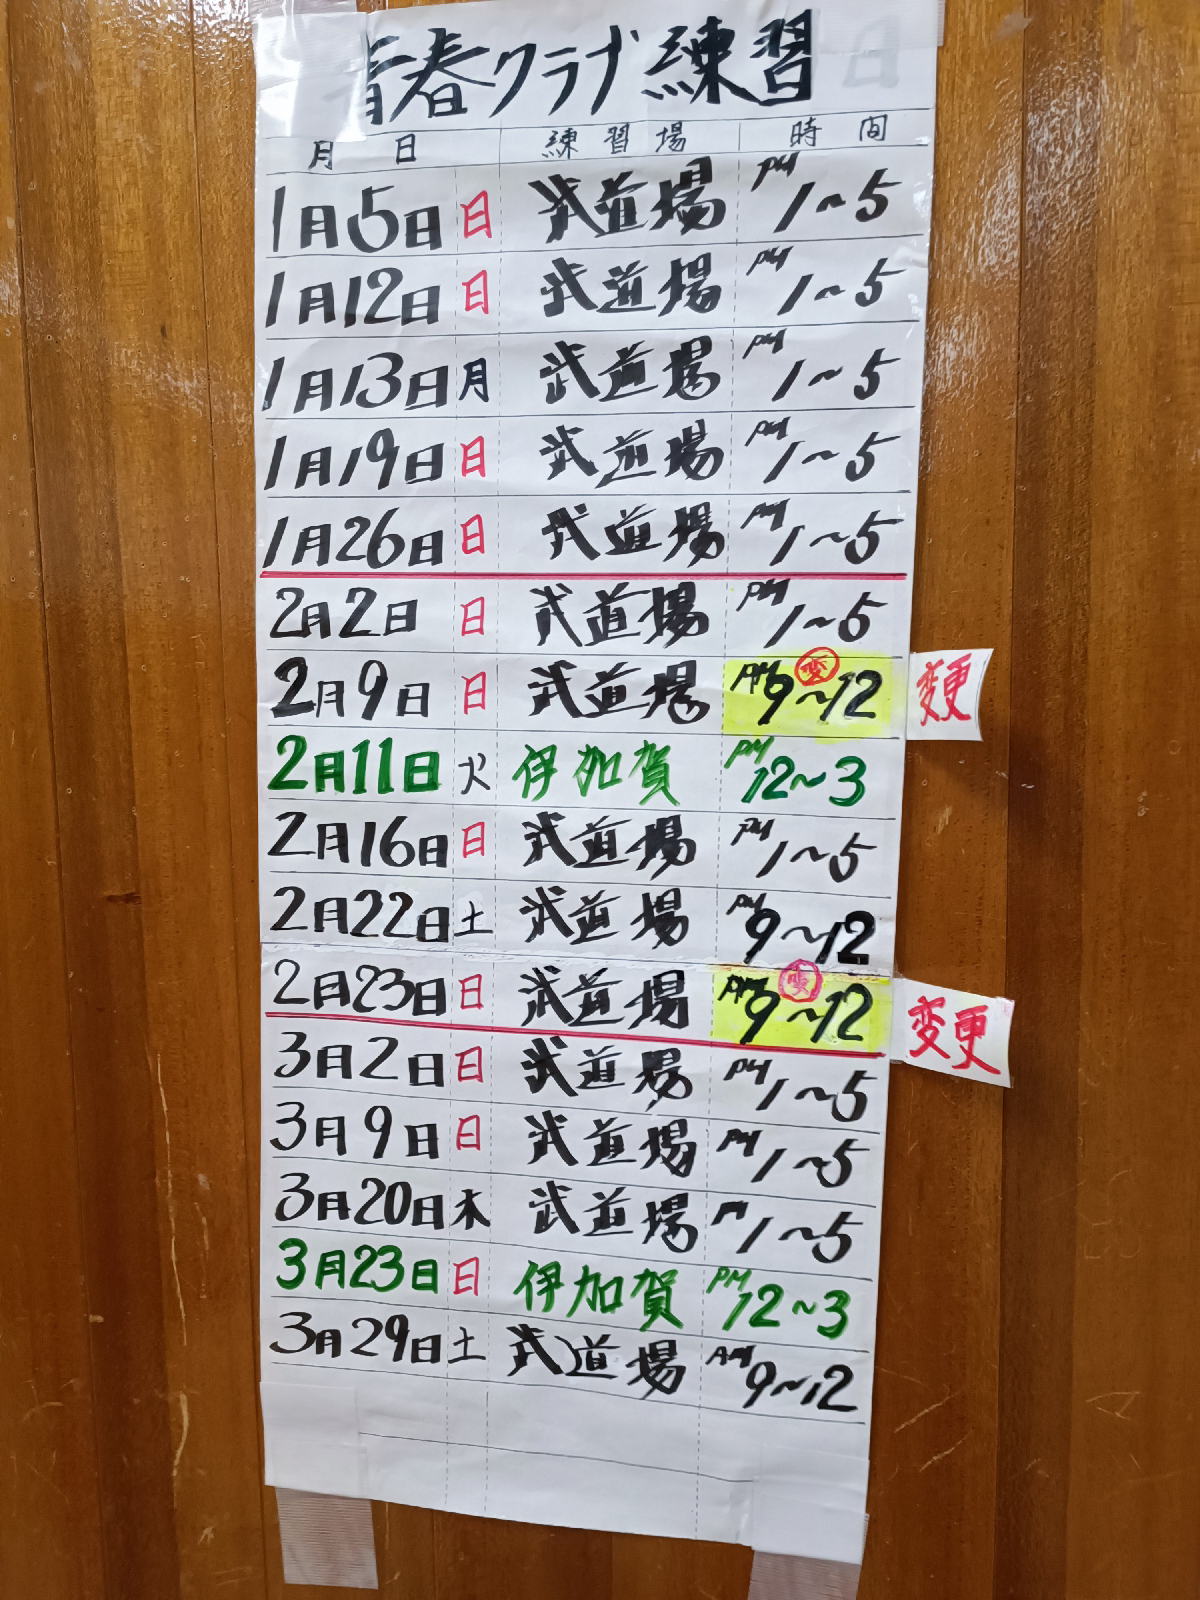 青春クラブ練習日
月 日 練習場 時間
1月5日 日 武道場 PM 1~5
1月12日 日 武道場 PM 1~5
1月13日 月 武道場 PM 1~5
1月19日 日 武道場 PM 1~5
1月26日 日 武道場 PM 1~5
2月2日 日 武道場 PM 1~5
2月9日 日 武道場 AM 9~12 変 変更
2月11日 火 伊加賀 PM 12~3
2月16日 日 武道場 PM 1~5
2月22日 土 武道場 9~12
2月23日 日 武道場 AM 9~12 変 変更
3月2日 日 武道場 PM 1~5
3月9日 日 武道場 PM 1~5
3月20日 木 武道場 PM 1~5
3月23日 日 伊加賀 PM 12~3
3月29日 土 武道場 AM 9~12